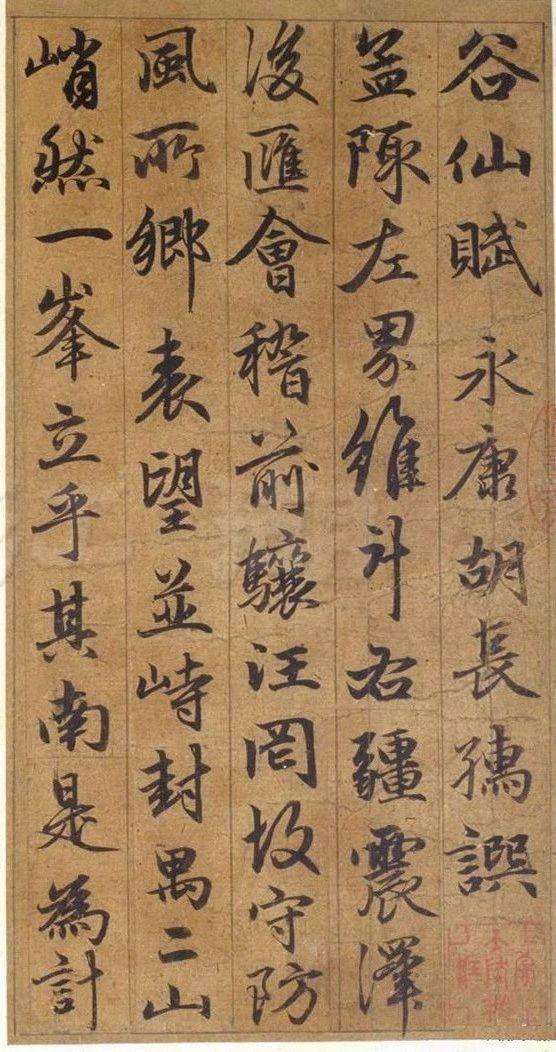 谷仙賦 永康胡長孺譔
盖陳左界維斗右疆震澤
後匯會稽前驤汪罔故守防
風所鄉表望並峙封禺二山
峭然一峯立乎其南是為計